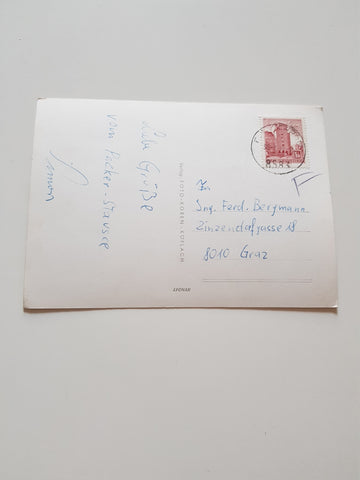 Liebe Grüße
vom Packer-Stausee
Verlag FOTO-KOREN KÖFLACH
8583
Ing. Ferd. Bergmann
Zinzendorfgasse 18
8010 Graz